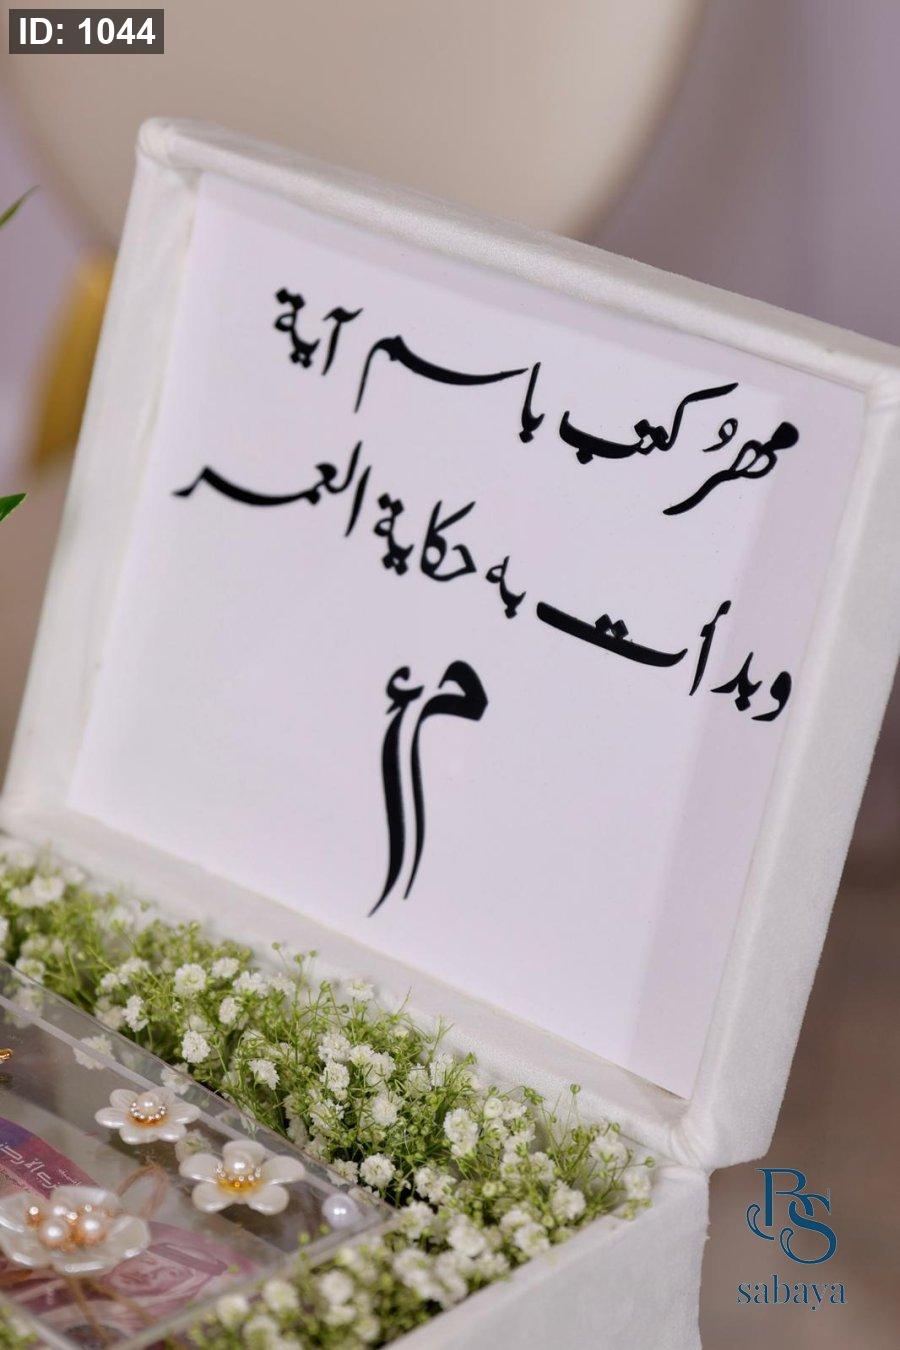 ID: 1044
مهرُ كتب باسم آية
وبدأت به حكاية العمر
م أ
RS
sabaya